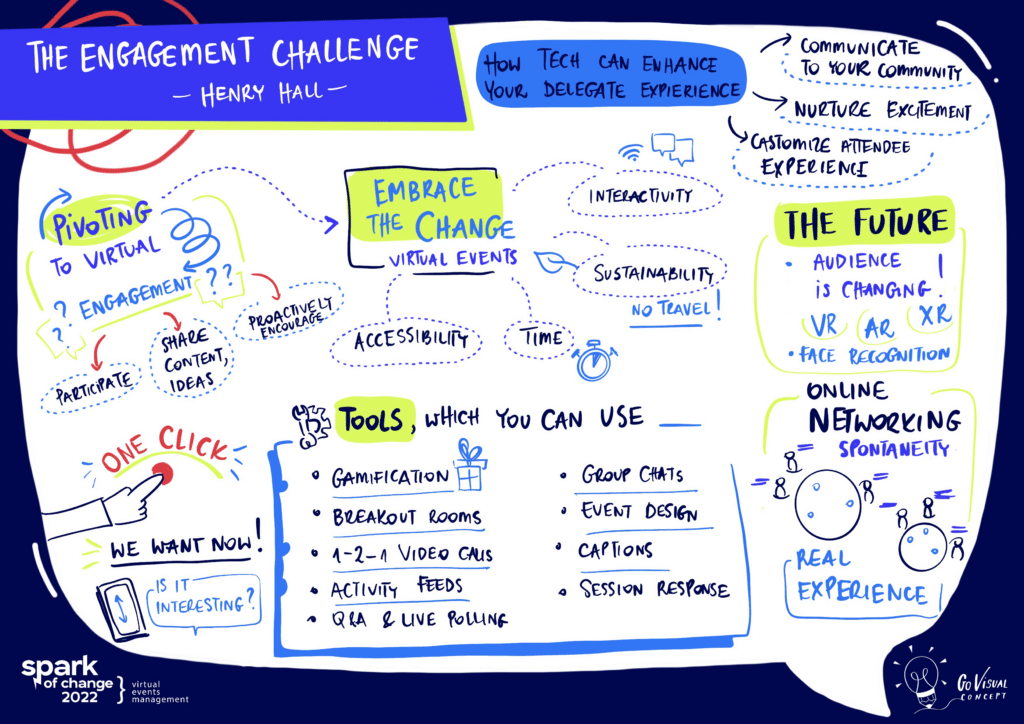 THE ENGAGEMENT CHALLENGE
— HENRY HALL —
HOW TECH CAN ENHANCE
YOUR DELEGATE EXPIERIENCE
COMMUNICATE
TO YOUR COMMUNITY
NURTURE EXCITEMENT
CASTOMIZE ATTENDEE
EXPERIENCE
PIVOTING
TO VIRTUAL
? ENGAGEMENT ??
?
PARTICIPATE
SHARE
CONTENT,
IDEAS
PROACTIVELY
ENCOURAGE
EMBRACE
THE CHANGE
VIRTUAL EVENTS
INTERACTIVITY
SUSTAINABILITY
NO TRAVEL!
ACCESSIBILITY
TIME
THE FUTURE
• AUDIENCE
IS CHANGING!
VR AR XR
• FACE RECOGNITION
ONE CLICK
WE WANT NOW!
IS IT
INTERESTING?
TOOLS, WHICH YOU CAN USE
• GAMIFICATION
• BREAKOUT ROOMS
• 1-2-1 VIDEO CALLS
• ACTIVITY FEEDS
• Q&A & LIVE POLLING
• GROUP CHATS
• EVENT DESIGN
• CAPTIONS
• SESSION RESPONSE
ONLINE
NETWORKING
SPONTANEITY
REAL
EXPERIENCE
spark
of change
2022
virtual
events
management
GO VISUAL
CONCEPT